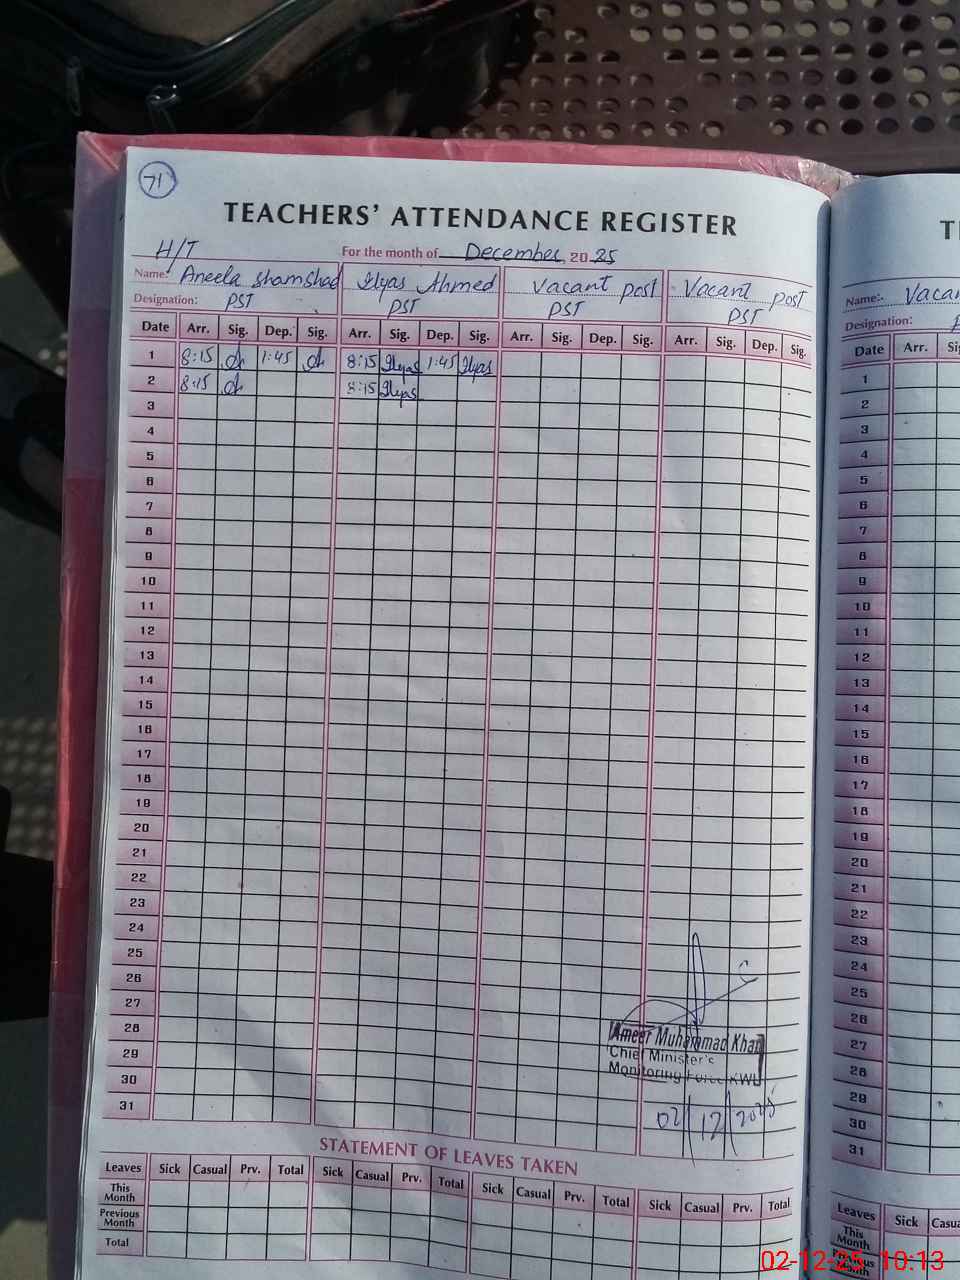 71
TEACHERS' ATTENDANCE REGISTER
H/T For the month of December, 2025
Name: Aneela Shamshad Ilyas Ahmed Vacant post Vacant post
Designation: PST PST PST PST
Date Arr. Sig. Dep. Sig. Arr. Sig. Dep. Sig. Arr. Sig. Dep. Sig. Arr. Sig. Dep. Sig.
1 8:15 1:45 8:15 Ilyas 1:45 Ilyas
2 8:15 8:15 Ilyas
3
4
5
6
7
8
9
10
11
12
13
14
15
16
17
18
19
20
21
22
23
24
25
26
27
28
29
30
31
Ameer Muhammad Khan
Chief Minister's
Monitoring Force KWL
02/12/2025
STATEMENT OF LEAVES TAKEN
Leaves Sick Casual Prv. Total Sick Casual Prv. Total Sick Casual Prv. Total Sick Casual Prv. Total
This Month
Previous Month
Total
Name:- Vacan
Designation:
Date Arr.
1
2
3
4
5
6
7
8
9
10
11
12
13
14
15
16
17
18
19
20
21
22
23
24
25
26
27
28
29
30
31
Leaves Sick Casua
This Month
Previous Month
02-12-25 10:13